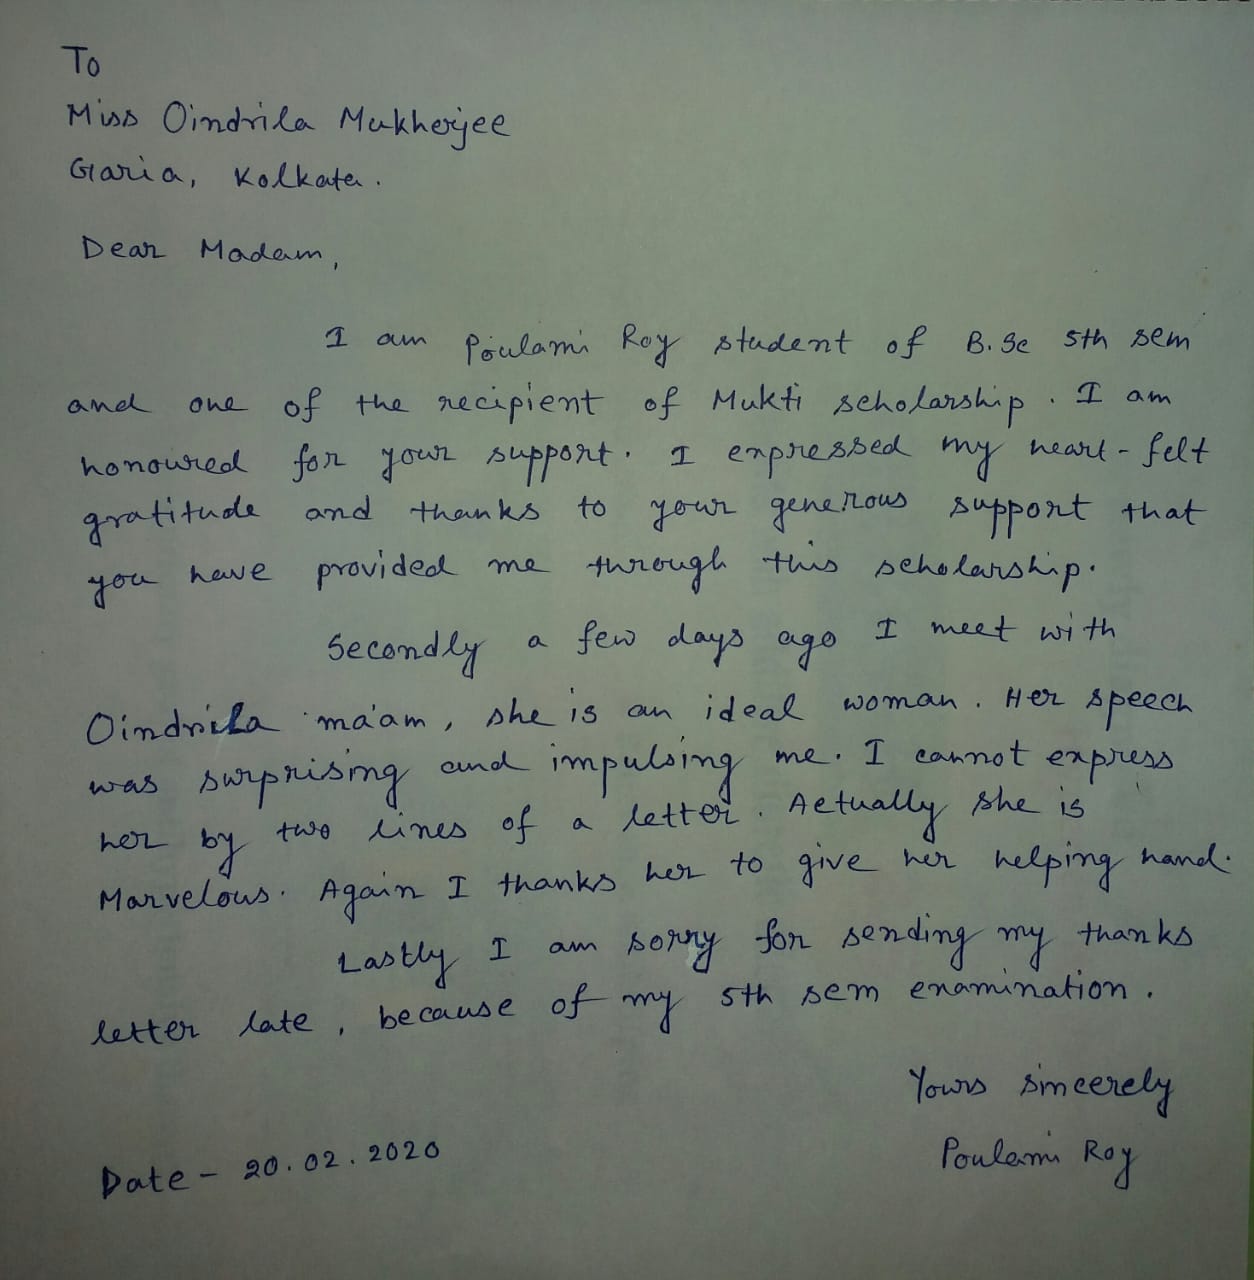 To
Miss Oindrila Mukherjee
Garia, Kolkata.
Dear Madam,
I am Poulami Roy student of B.Sc 5th sem
and one of the recipient of Mukti scholarship. I am
honoured for your support. I expressed my heart-felt
gratitude and thanks to your generous support that
you have provided me through this scholarship.
Secondly a few days ago I meet with
Oindrila ma'am, she is an ideal woman. Her speech
was surprising and impulsing me. I cannot express
her by two lines of a letter. Actually she is
Marvelous. Again I thanks her to give her helping hand.
Lastly I am sorry for sending my thanks
letter late, because of my 5th sem examination.
Yours sincerely
Poulami Roy
Date - 20.02.2020